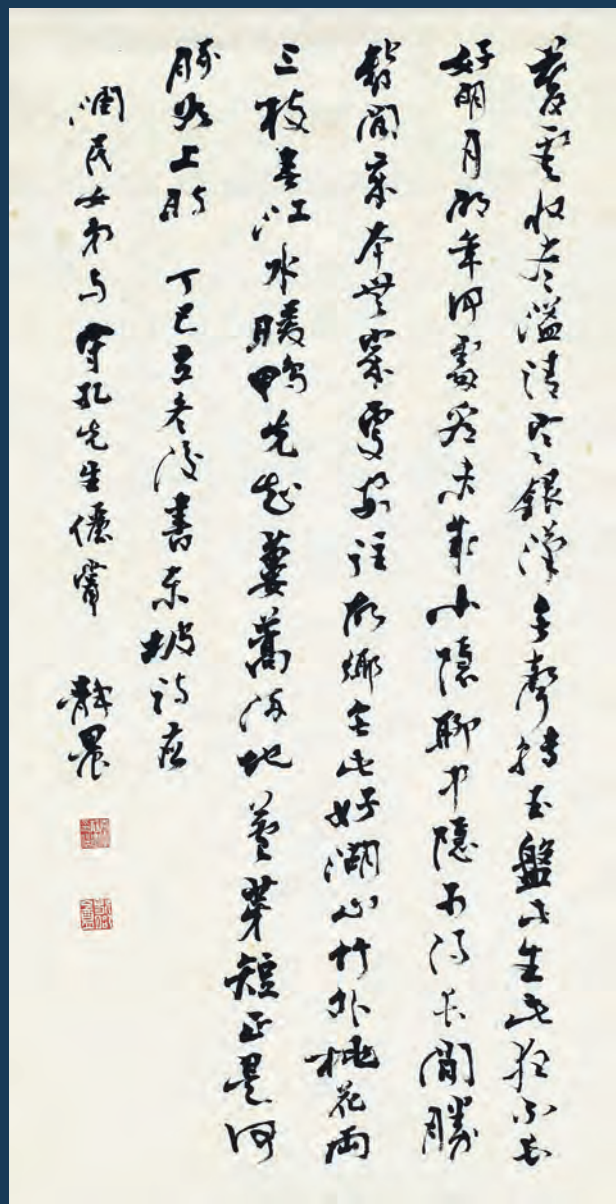 暮雲收尽溢清寒銀漢無聲轉玉盤此生此夜不長
好明月明年何處看未成小隱聊中隱可得長閒勝
暫閒我本無家更安往故鄉無此好湖山竹外桃花兩
三枝春江水暖鴨先知蔞蒿滿地蘆芽短正是河
豚欲上時 丁巳立冬後書東坡詩應
潤民女弟与守孔先生儷賞 靜農